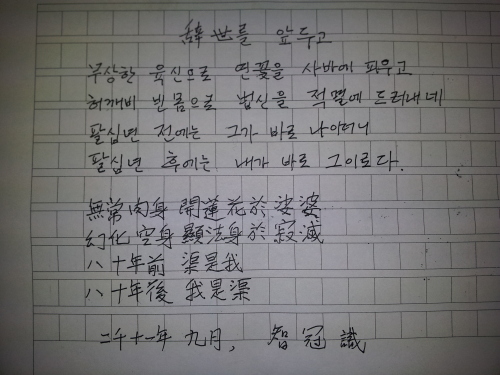 辭世를 앞두고
무상한 육신으로 연꽃을 사바에 피우고
허깨비 빈 몸으로 법신을 적멸에 드러내네
팔십년 전에는 그가 바로 나이더니
팔십년 후에는 내가 바로 그이로다.
無常肉身 開蓮花於娑婆
幻化空身 顯法身於寂滅
八十年前 渠是我
八十年後 我是渠
二千十一年 九月, 智冠 識